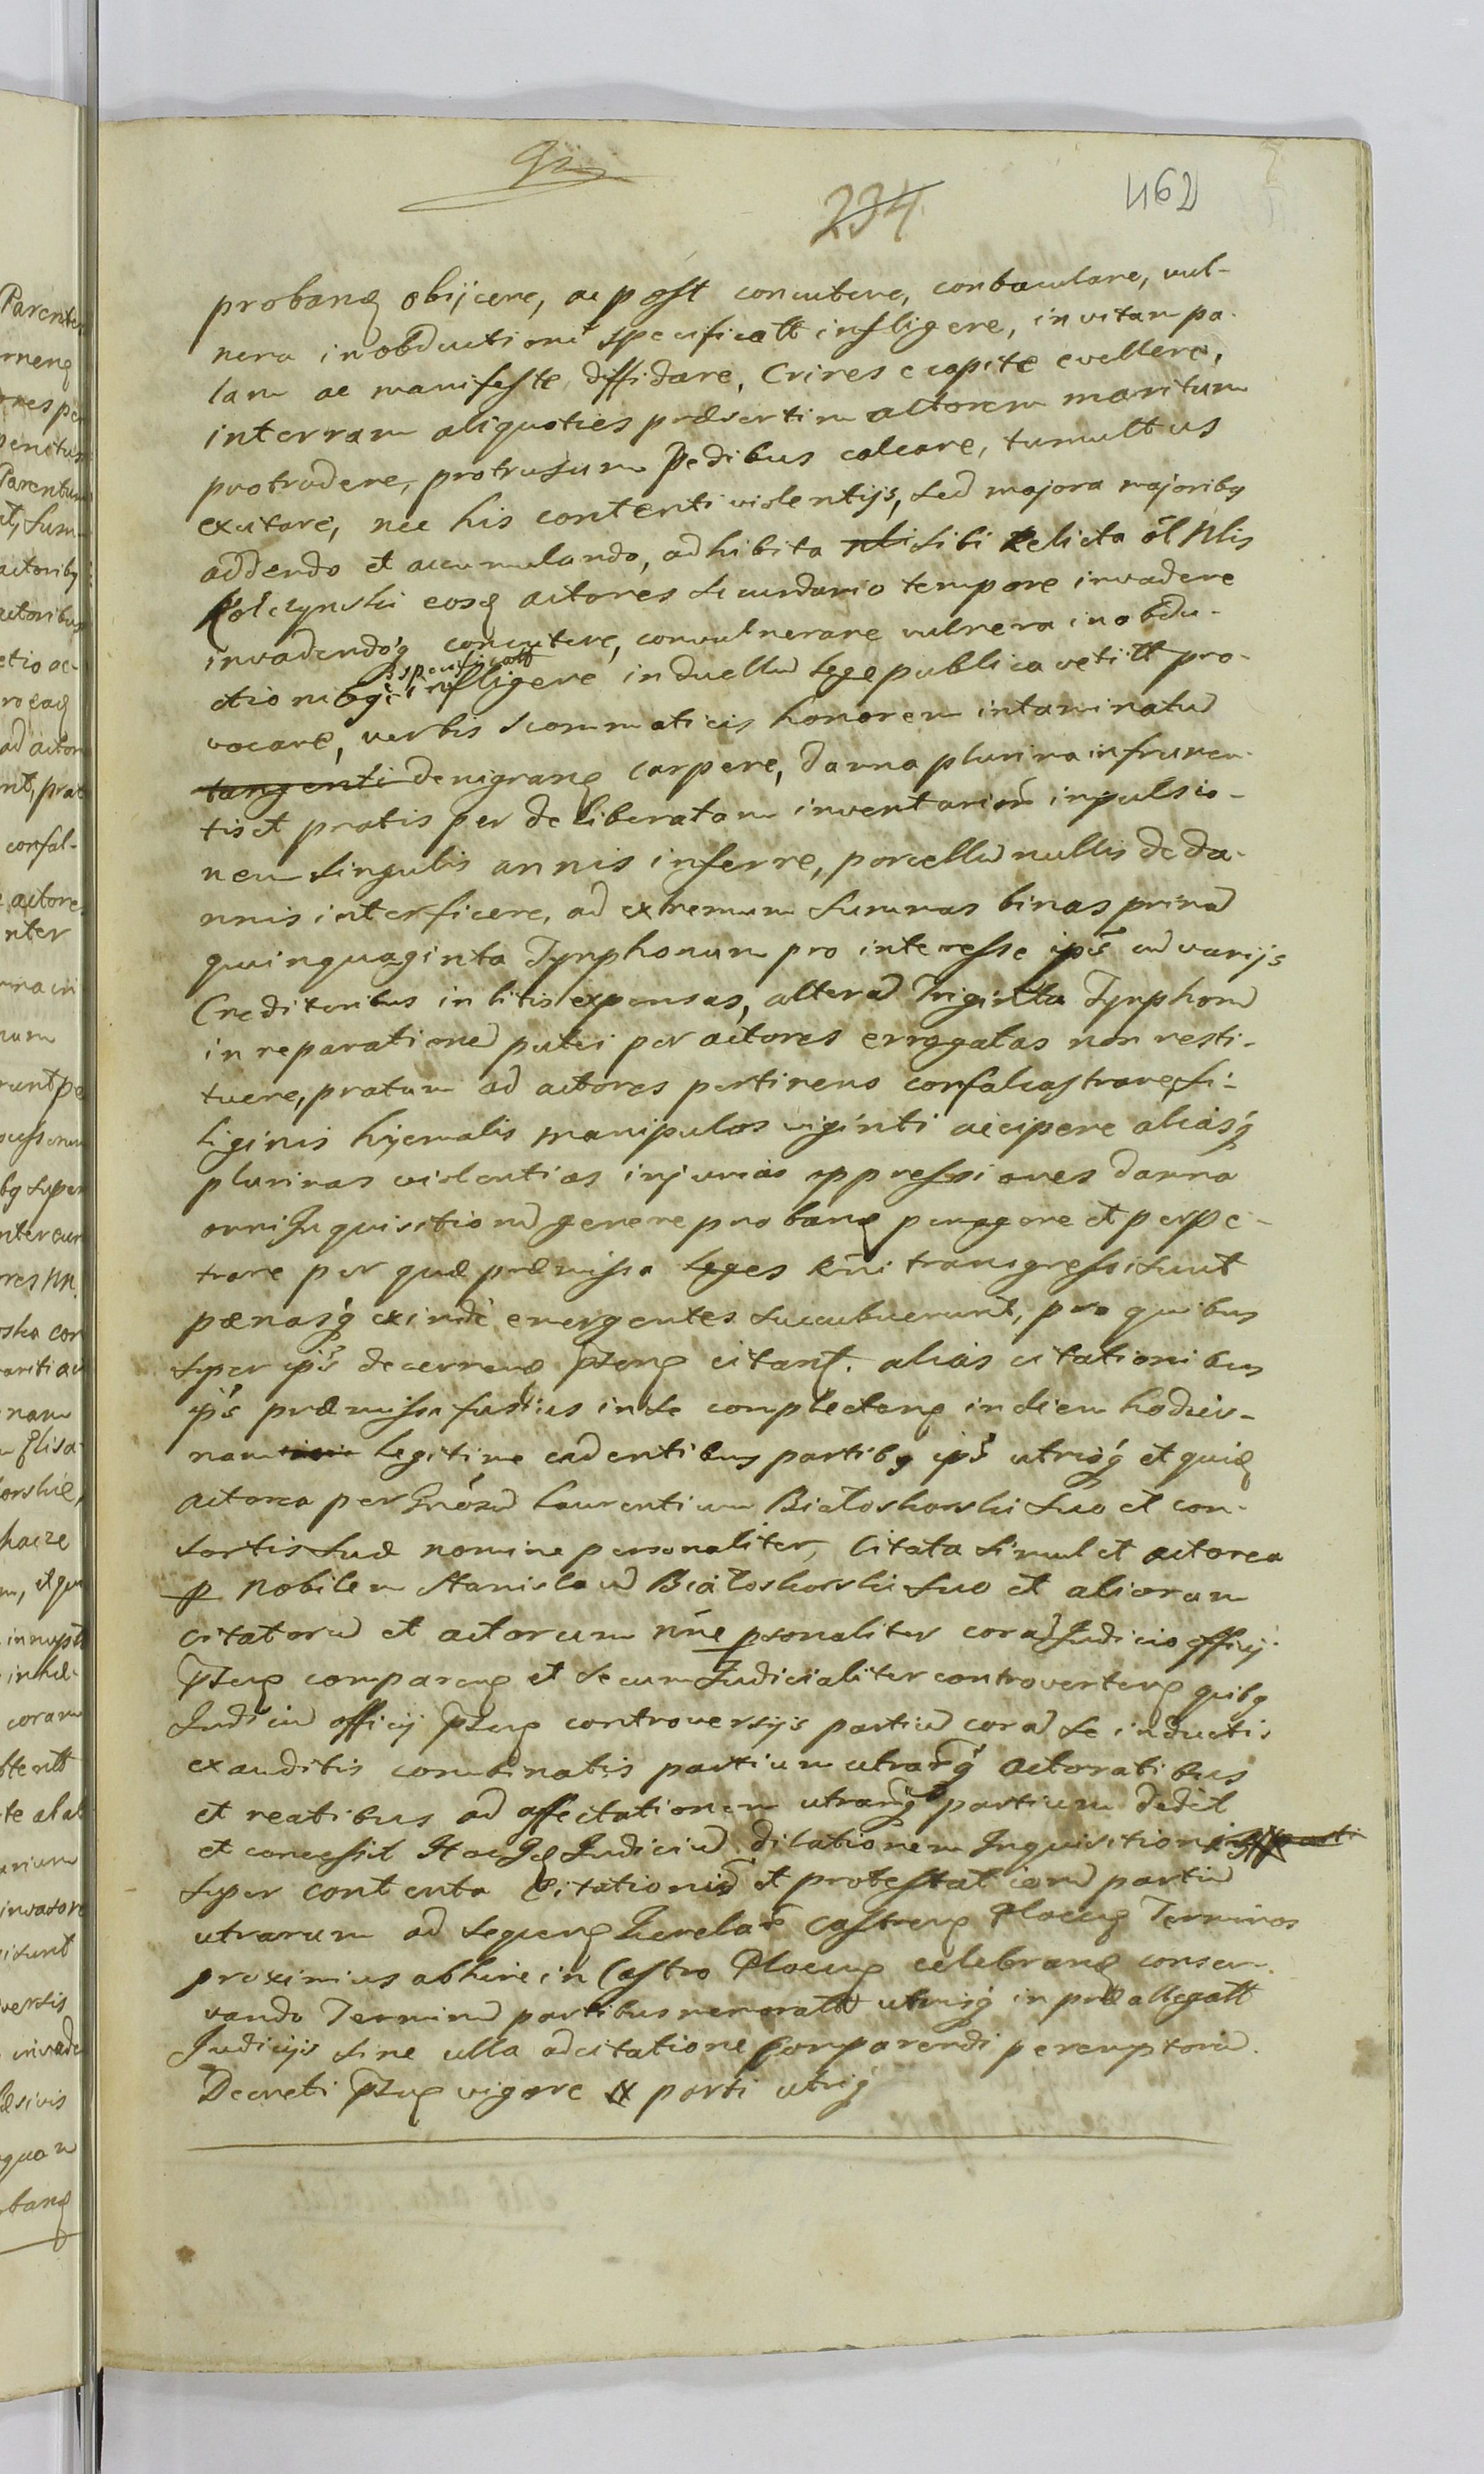 234
462
proband obijcere, ac post concutere, conbaculare, vul-
nera in obductione specificatt infligere, in vitam pa-
lam ac manifeste diffidare, Crines e capite evellere,
in terram aliquoties præsertim actorem maritum
protrudere, protrusum Pedibus calcare, tumultus
excitare, nec his contenti violentijs, sed majora majoribq
addendo et accumulando, adhibita sibi Relicta ol Nlis
Kołczynski eosd actores secundario tempore invadere
invadendoq concutere, convulnerare vulnera in obdu-
ctionibq specificatt infligere in duellu lege publica vetitt pro-
vocare, verbis scommaticis honorem intaminatu
tangenti denigrand carpere, damna plurima in frumen-
tis et pratis per deliberatam inventariorū impulsio-
nem singulis annis inferre, porcellu nullis de da-
mnis interficere, ad extremum summas binas primā
quinquaginta Tynphonum pro interesse ips cū varijs
Creditoribus in litis expensas, alterā Triginta Tynphonū
in reparationē putei per actores errogatas non resti-
tuere, pratum ad actores pertinens confalcastrare, si-
liginis hyemalis manipulos viginti accipere aliasq
plurimas violentias injurias oppressiones damna
omni Inquisitionū genere proband peragere et perpe-
trare per quæ præmissa leges Rni transgressi sunt
pænasq exinde emergentes succubuerunt, pro quibus
super ips decernend citant. alias citationibus
ips præmissa fusius in se complecten in diem hodier-
nam legitime cadentibus partibq ips utrisq et quid
actorea per Gnosū Laurentium Białoskorski suo et con-
sortis suæ nomine personaliter, Citata simul et actorea
p Nobilem Stanislaū Białoskorski suo et aliorum
citatorū et actorum nne psonaliter corā Judicio officij
comparen et secum Judicialiter controverten quibq
Judiciū officij controversijs partiū corā se inductis
exauditis combinatis partium utrarq actoratibus
et reatibus ad affectationem utrarq partium dedit
et concessit Judiciū dilationem Inquisitionis parti
super contenta Citationū et protestationū partiū
utrarum ad sequen Querelar Castren Plocen Terminos
proximius abhinc in Castro Plocen celebrand conser-
vando Terminū partibus memoratt utrisq in præallegatt
Judicijs sine ulla adcitatione Comparendi peremptoriū.
Decreti vigore parti utriq